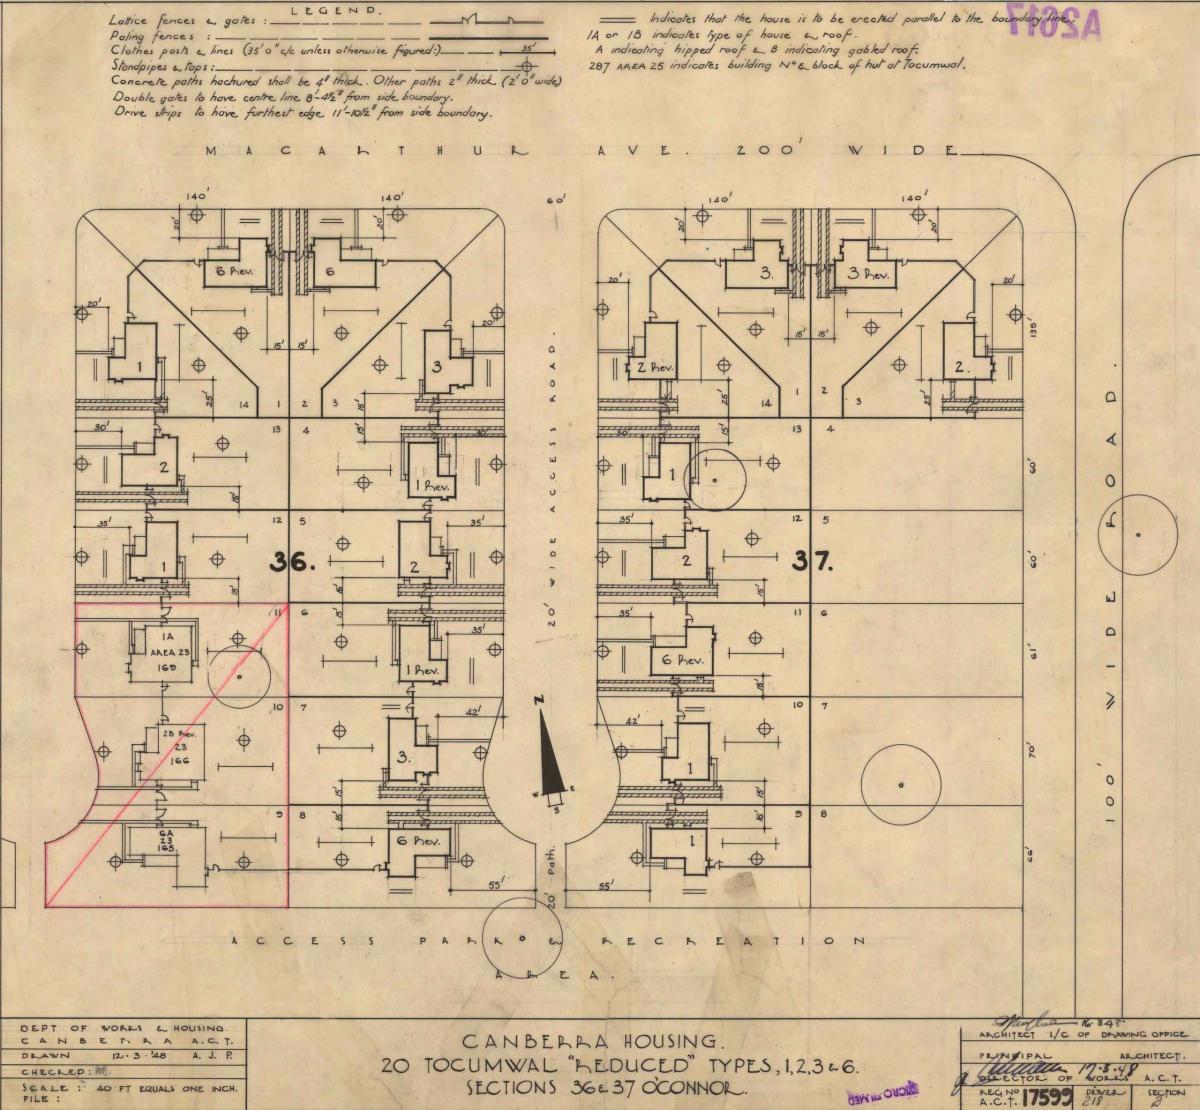 LEGEND.
Lattice fences & gates :
Paling fences :
Clothes posts & lines (35'0" c/c unless otherwise figured:) 35'
Standpipes & taps :
Concrete paths hachured shall be 4" thick. Other paths 2" thick (2'0" wide)
Double gates to have centre line 8'-4½" from side boundary.
Drive strips to have furthest edge 11'-10½" from side boundary.
Indicates that the house is to be erected parallel to the boundary line.
1A or 1B indicates type of house & roof.
A indicating hipped roof & B indicating gabled roof.
287 AREA 25 indicates building Nº & block of hut at Tocumwal.
A2617
MACARTHUR AVE. 200' WIDE
140' 140' 60' 140' 140'
20' 20' 20' 20'
6 Rev. 6 3. 3 Rev.
20' 20' 20' 20'
15' 15' 15' 15'
135'
1 3 2 Rev. 2.
25' 15' 25' 25'
14 1 2 3 14 1 2 3
13 4 13 4
30' 15' 30' 30'
2 1 Rev. 1
60'
15'
12 5 12 5
35' 35' 35'
1 36. 2 2 37.
60'
15' 15' 15'
11 6 11 6
1A
AREA 23
169
15' 35' 35'
1 Rev. 6 Rev.
61'
15'
10 7 10 7
2B Rev.
23
166
42' 42'
3. 1
70'
N
W E
S
15' 15'
9 8 9 8
6A
23
165
15' 15'
6 Rev. 1
66'
55' 55'
20' WIDE ACCESS ROAD.
20' Path.
100' WIDE ROAD.
ACCESS PARK & RECREATION
AREA.
DEPT OF WORKS & HOUSING.
CANBERRA A.C.T.
DRAWN 12·3·'48 A.J.P.
CHECKED:
SCALE : 40 FT EQUALS ONE INCH.
FILE :
CANBERRA HOUSING.
20 TOCUMWAL "REDUCED" TYPES, 1,2,3 & 6.
SECTIONS 36 & 37 O'CONNOR.
MICROFILMED
ARCHITECT I/C OF DRAWING OFFICE.
PRINCIPAL ARCHITECT.
17-3-48
DIRECTOR OF WORKS A.C.T.
REG Nº
A.C.T. 17599
DRAWER
218
SECTION